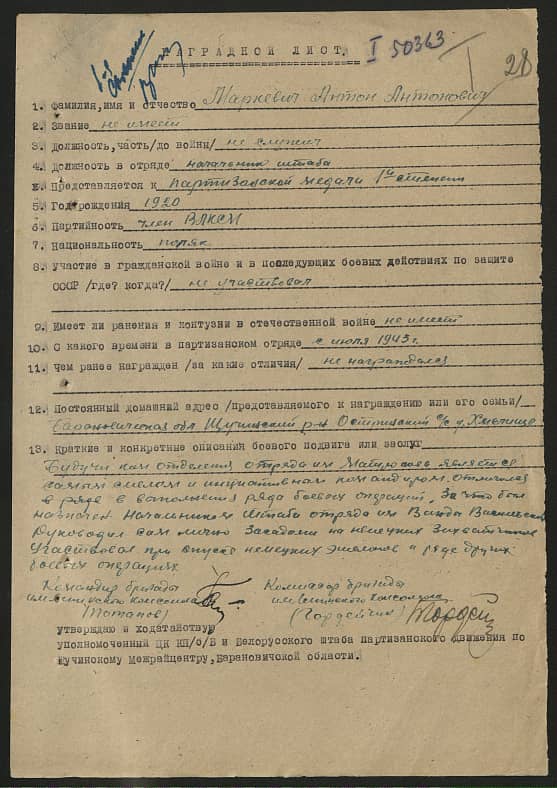 НАГРАДНОЙ ЛИСТ.
I 50363
28
1. Фамилия,имя и отчество Маркевич Антон Антонович
2. Звание не имеет
3. Должность,часть/до войны/ не служил
4. Должность в отряде начальник штаба
х. Представляется к партизанской медали 1ой степени
5. Год рождения 1920
6. Партийность член ВЛКСМ
7. Национальность поляк
8. Участие в гражданской войне и в последующих боевых действиях по защите
СССР /где? когда?/ не участвовал
9. Имеет ли ранения и контузии в отечественной войне не имеет
10. С какого времени в партизанском отряде с июля 1943 г.
11. Чем ранее награжден /за какие отличия/ не награждался
12. Постоянный домашний адрес /представляемого к награждению или его семьи/
Барановическая обл. Щучинский р-н с/с д.
13. Краткие и конкретные описания боевого подвига или заслуг
Будучи ком отделения отряда им Матросова является
самым смелым и инициативным командиром отличился
в ряде в выполнения ряда боевых операций, За что был
назначен Начальником Штаба отряда им Ванды Василевской
Руководил сам лично Засадами на немецких Захватчиков
Участвовал при спуске немецких эшелонов и ряде других
боевых операциях
Командир бригады Комиссар бригады
им Ленинского комсомола им Ленинского Комсомола
(Потапов) (Гордейчик)
утверждаю и ходатайствую
уполномоченный ЦК КП/б/Б и Белорусского штаба Партизанского движения по
Щучинскому Межрайцентру, Барановичской области.